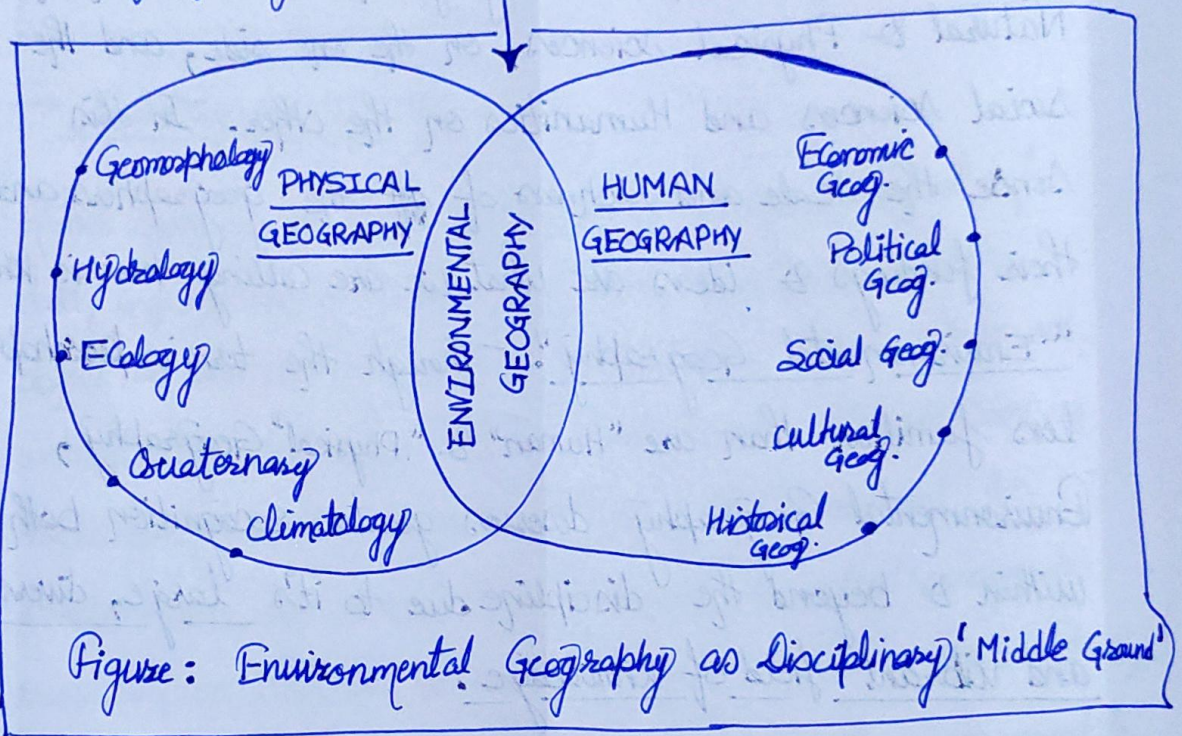 Geomorphology
Hydrology
Ecology
Quaternary
Climatology
PHYSICAL
GEOGRAPHY
ENVIRONMENTAL
GEOGRAPHY
HUMAN
GEOGRAPHY
Economic
Geog.
Political
Geog.
Social Geog.
Cultural
Geog.
Historical
Geog.
Figure: Environmental Geography as Disciplinary 'Middle Ground'